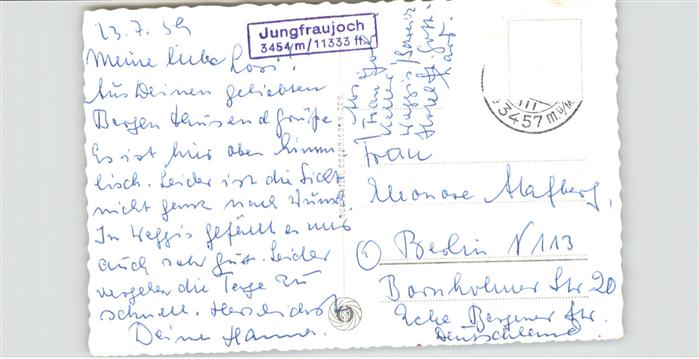 23.7.59
Jungfraujoch
3454 m/11333 ft
Meine liebe Rosi!
Aus Deinen geliebten
Bergen tausend Grüße
Es ist hier oben himm
lisch. Leider ist die Sicht
nicht ganz nach Wunsch
In Weggis gefällt es uns
auch sehr gut. Leider
vergehen die Tage zu
schnell. Herzlichst
Deine Hanna.
Weggis
Hotel
3457 m.ü.M.
Frau
Eleonore
① Berlin N 113
Bornholmer Str 20
Ecke Bergener Str.
Deutschland